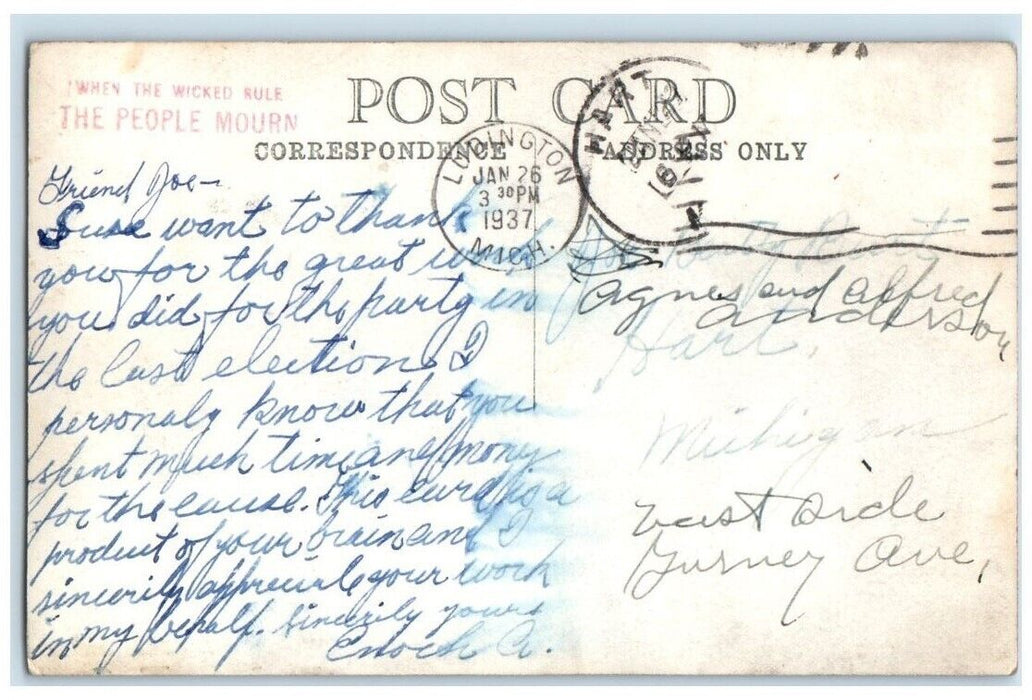 WHEN THE WICKED RULE
THE PEOPLE MOURN
POST CARD
CORRESPONDENCE
ADDRESS ONLY
LUDINGTON
JAN 26
3 30 PM
1937
MICH.
HART
Friend Joe-
Sure want to thank
you for the great work
you did for the party in
the last election. I
personaly know that you
spent much time and mony
for the cause. This card is a
product of your brain and I
sincerily appreciate your work
in my behalf. Sincerily yours
Enoch A.
Agnes and Alfred
Anderson
Hart,
Michigan
East Side
Gurney Ave,